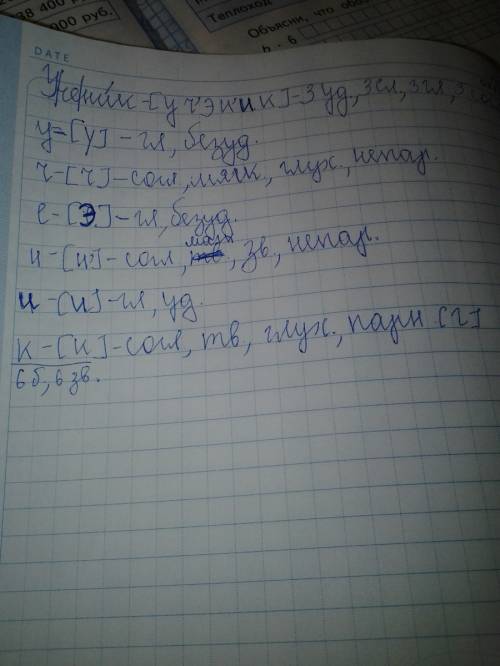 38 400 руб.
000 руб.
Теплоход
Объясни, что обоз
b · 6
DATE
Ученик - [у ч'э н'и к] - 3 уд, 3сл, 3гл, 3
у - [у] - гл, безуд.
ч - [ч] - согл, мягк, глух., непар.
е - [э] - гл, безуд.
н - [н'] - согл, мягк, зв, непар.
и - [и] - гл, уд.
к - [к] - согл, тв, глух., парн [г]
6 б, 6 зв.